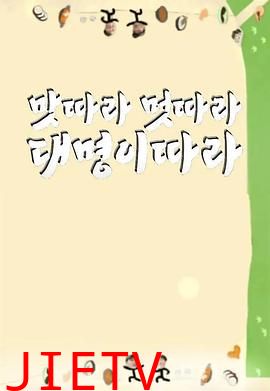 맛따라 멋따라
대명이따라
JIETV